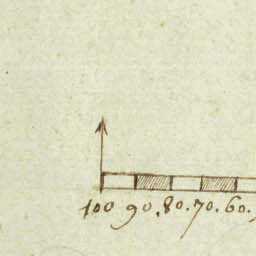 100 90. 80. 70. 60.